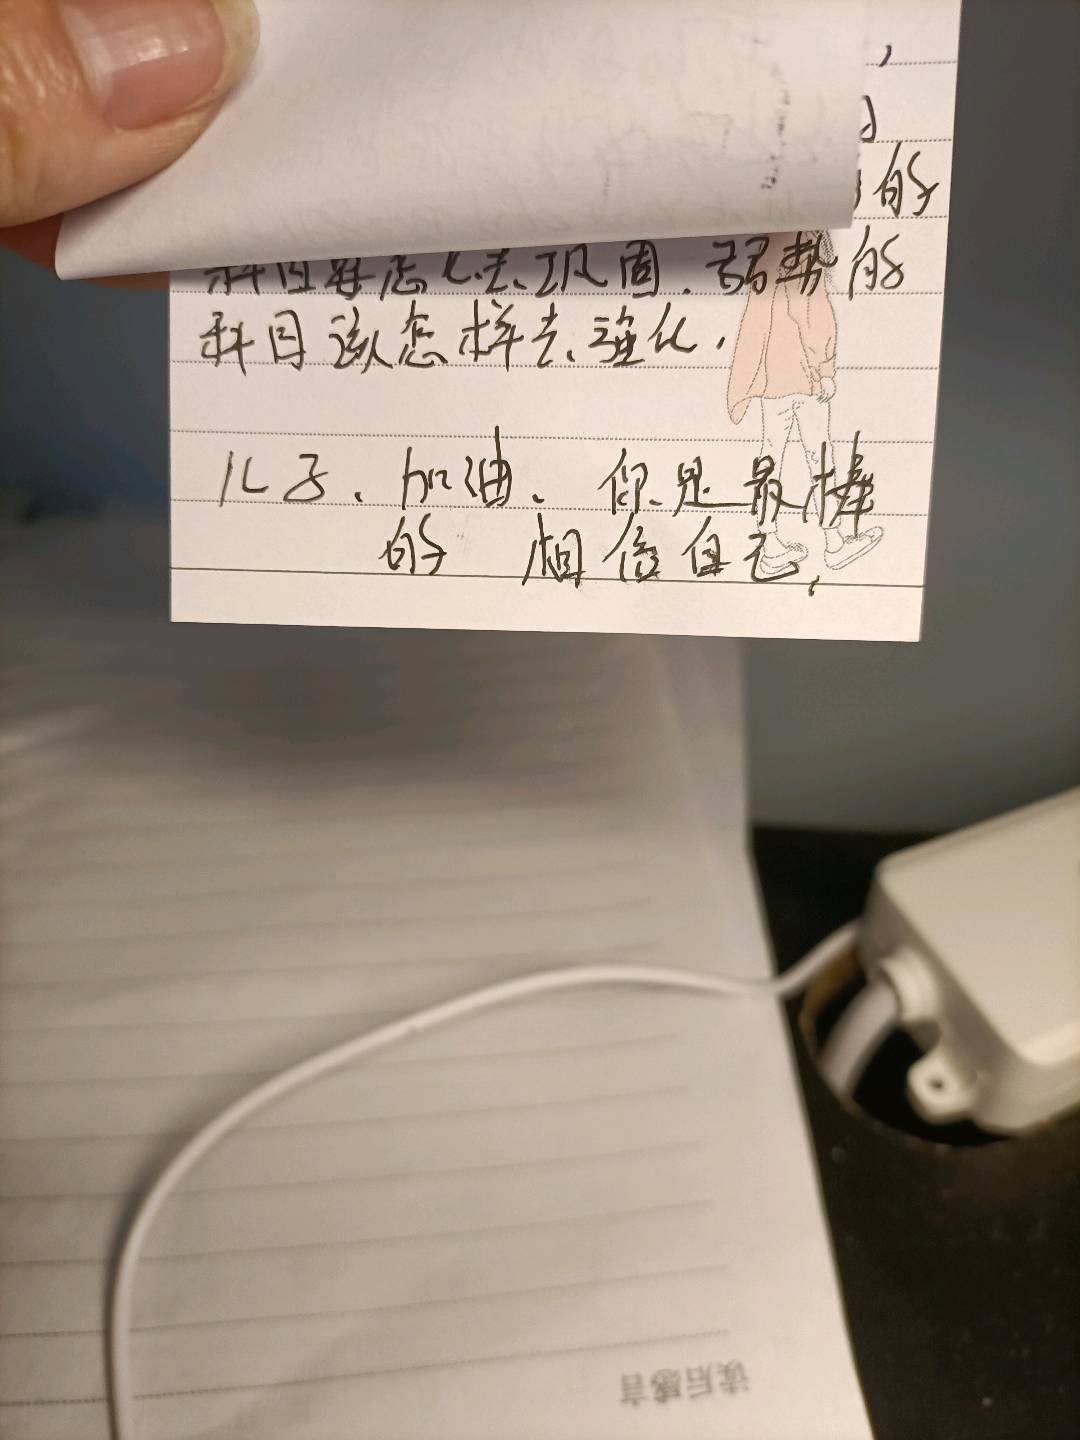 ,
的
科目要怎么去巩固、弱势的
科目该怎样去强化,
儿子、加油、你是最棒
的 相信自己,
读后感言